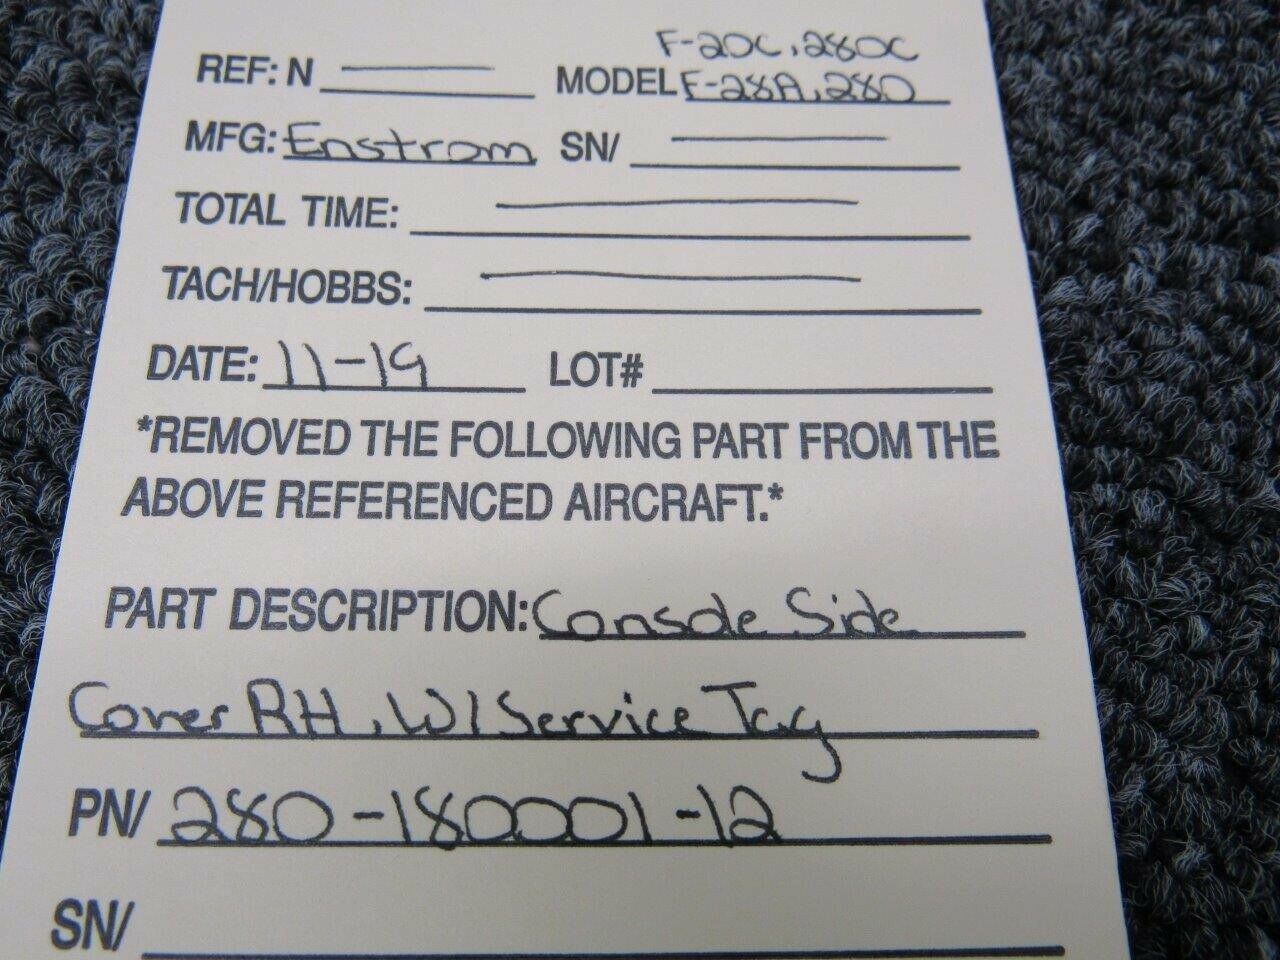 F-20C, 280C
REF: N MODEL F-28A, 280
MFG: Enstrom SN/
TOTAL TIME:
TACH/HOBBS:
DATE: 11-19 LOT#
*REMOVED THE FOLLOWING PART FROM THE
ABOVE REFERENCED AIRCRAFT.*
PART DESCRIPTION: Console Side
Cover RH, W/ Service Tag
PN/ 280-180001-12
SN/